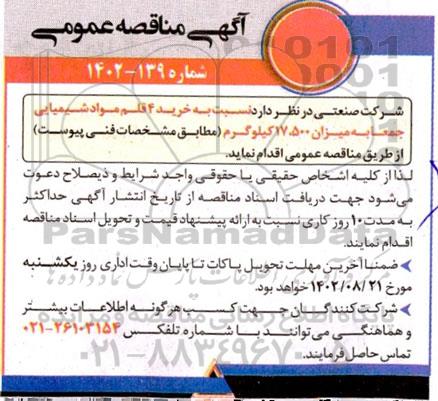 آگهی مناقصه عمومی
شماره ۱۳۹-۱۴۰۲
شرکت صنعتی در نظر دارد نسبت به خرید ۴ قلم مواد شیمیایی
جمعا به میزان ۱۷.۵۰۰ کیلوگرم (مطابق مشخصات فنی پیوست)
از طریق مناقصه عمومی اقدام نماید.
لذا از کلیه اشخاص حقیقی یا حقوقی واجد شرایط و ذیصلاح دعوت
می‌شود جهت دریافت اسناد مناقصه از تاریخ انتشار آگهی حداکثر
به مدت ۱۰ روز کاری نسبت به ارائه پیشنهاد قیمت و تحویل اسناد مناقصه
اقدام نمایند.
ضمنا آخرین مهلت تحویل پاکات تا پایان وقت اداری روز یکشنبه
مورخ ۱۴۰۲/۰۸/۲۱ خواهد بود.
شرکت کنندگان جهت کسب هرگونه اطلاعات بیشتر
و هماهنگی می‌توانند با شماره تلفکس ۲۶۱۰۳۱۵۴-۰۲۱
تماس حاصل فرمایند.
ParsNamadData
۰۲۱-۸۸۳۴۹۶۷۰